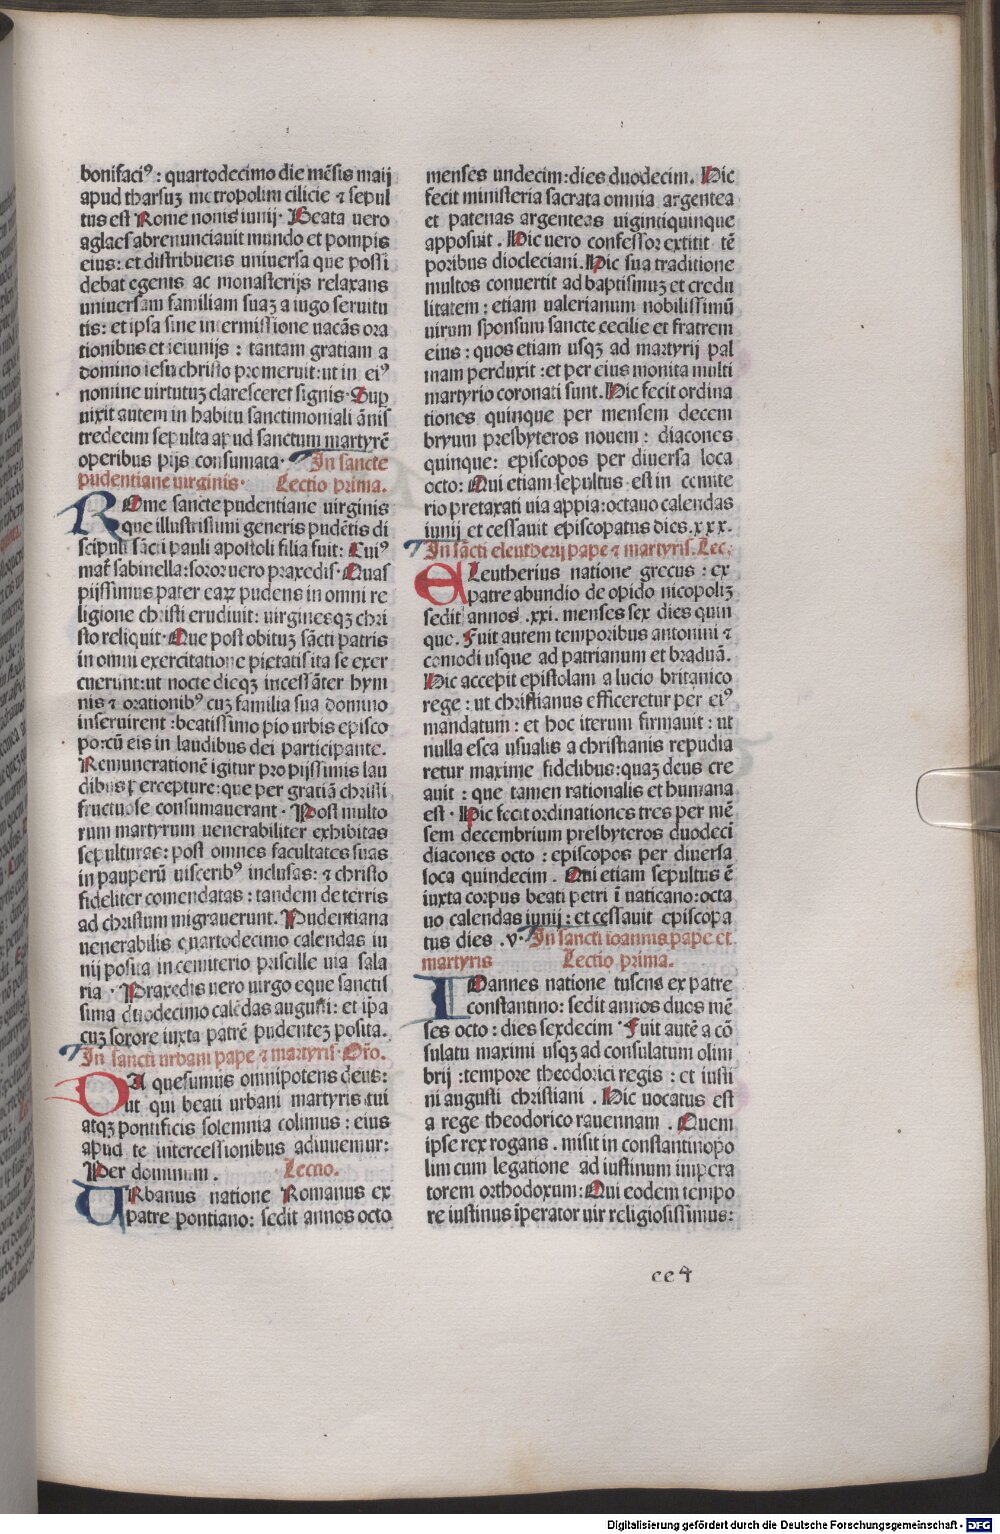 bonifaciꝰ : quartodecimo die mēsis maij
apud tharsuꝫ metropolim cilicie ⁊ sepul
tus est Rome nonis iunij · Beata uero
aglaes abrenunciauit mundo et pompis
eius: et distribuens uniuersa que possi
debat egenis ac monasterijs relaxans
uniuersam familiam suaꝫ a iugo seruitu
tis: et ipsa sine intermissione uacās ora
tionibus et ieiunijs : tantam gratiam a
domino iesu christo promeruit: ut in eiꝰ
nomine uirtutuꝫ claresceret signis · Sup
uixit autem in habitu sanctimoniali ānis
tredecim sepulta apud sanctum martyrē
operibus pijs consumata · In sancte
pudentiane uirginis · Lectio prima.
ROme sancte pudentiane uirginis
que illustrissimi generis pudētis di
scipuli sācti pauli apostoli filia fuit: Cuiꝰ
mat̄ sabinella: soror uero praxedis · Quas
pijssimus pater earꝝ pudens in omni re
ligione christi erudiuit: uirginesqꝫ chri
sto reliquit · Que post obituꝫ sācti patris
in omni exercitatione pietatis ita se exer
cuerunt: ut nocte dieqꝫ incessāter hym
nis ⁊ orationibꝰ cuꝫ familia sua domino
inseruirent : beatissimo pio urbis episco
po: cū eis in laudibus dei participante.
Remunerationē igitur pro pijssimis lau
dibus percepture: que per gratiā christi
fructuose consumauerant · Post multo
rum martyrum uenerabiliter exhibitas
sepulturas: post omnes facultates suas
in pauperū uisceribꝰ inclusas: ⁊ christo
fideliter comendatas : tandem de terris
ad christum migrauerunt. Pudentiana
uenerabilis quartodecimo calendas iu
nij posita in cemiterio priscille uia sala
ria · Praxedis uero uirgo eque sanctis
sima duodecimo calēdas augusti: et ip̄a
cuꝫ sorore iuxta patrē pudenteꝫ posita.
In sancti urbani pape ⁊ martyris · Oro.
DA quesumus omnipotens deus:
ut qui beati urbani martyris tui
atqꝫ pontificis solemnia colimus : eius
apud te intercessionibus adiuuemur:
Per dominum . Lectio.
URbanus natione Romanus ex
patre pontiano: sedit annos octo
menses undecim: dies duodecim. Hic
fecit ministeria sacrata omnia argentea
et patenas argenteas uigintiquinque
apposuit . Hic uero confessor extitit tē
poribus diocleciani. Hic sua traditione
multos conuertit ad baptismuꝫ et credu
litatem : etiam ualerianum nobilissimū
uirum sponsum sancte cecilie et fratrem
eius : quos etiam usqꝫ ad martyrij pal
mam perduxit : et per eius monita multi
martyrio coronati sunt. Hic fecit ordina
tiones quinque per mensem decem
bryum presbyteros nouem : diacones
quinque: episcopos per diuersa loca
octo: Qui etiam sepultus est in cemite
rio pretaxati uia appia: octauo calendas
iunij et cessauit episcopatus dies .xxx.
In sācti eleutherij pape ⁊ martyris. Lec.
ELeutherius natione grecus : ex
patre abundio de opido nicopoliꝫ
sedit annos .xxi. menses sex dies quin
que . Fuit autem temporibus antonini ⁊
comodi usque ad patrianum et braduā.
Hic accepit epistolam a lucio britanico
rege : ut christianus efficeretur per eiꝰ
mandatum : et hoc iterum firmauit : ut
nulla esca usualis a christianis repudia
retur maxime fidelibus: quaꝫ deus cre
auit : que tamen rationalis et humana
est · Hic fecit ordinationes tres per mē
sem decembrium presbyteros duodeci
diacones octo : episcopos per diuersa
loca quindecim . Qui etiam sepultus ē
iuxta corpus beati petri ī uaticano: octa
uo calendas iunij : et cessauit episcopa
tus dies .v. In sancti ioannis pape et
martyris Lectio prima.
IOannes natione tuscus ex patre
constantino: sedit annos duos mē
ses octo : dies sexdecim · Fuit autē a cō
sulatu maximi usqꝫ ad consulatum olim
brij : tempore theodorici regis : et iusti
ni augusti christiani . Hic uocatus est
a rege theodorico rauennam . Quem
ipse rex rogans . misit in constantinopo
lim cum legatione ad iustinum impera
torem orthodoxum: Qui eodem tempo
re iustinus īperator uir religiosissimus:
cc4
Digitalisierung gefördert durch die Deutsche Forschungsgemeinschaft - DFG